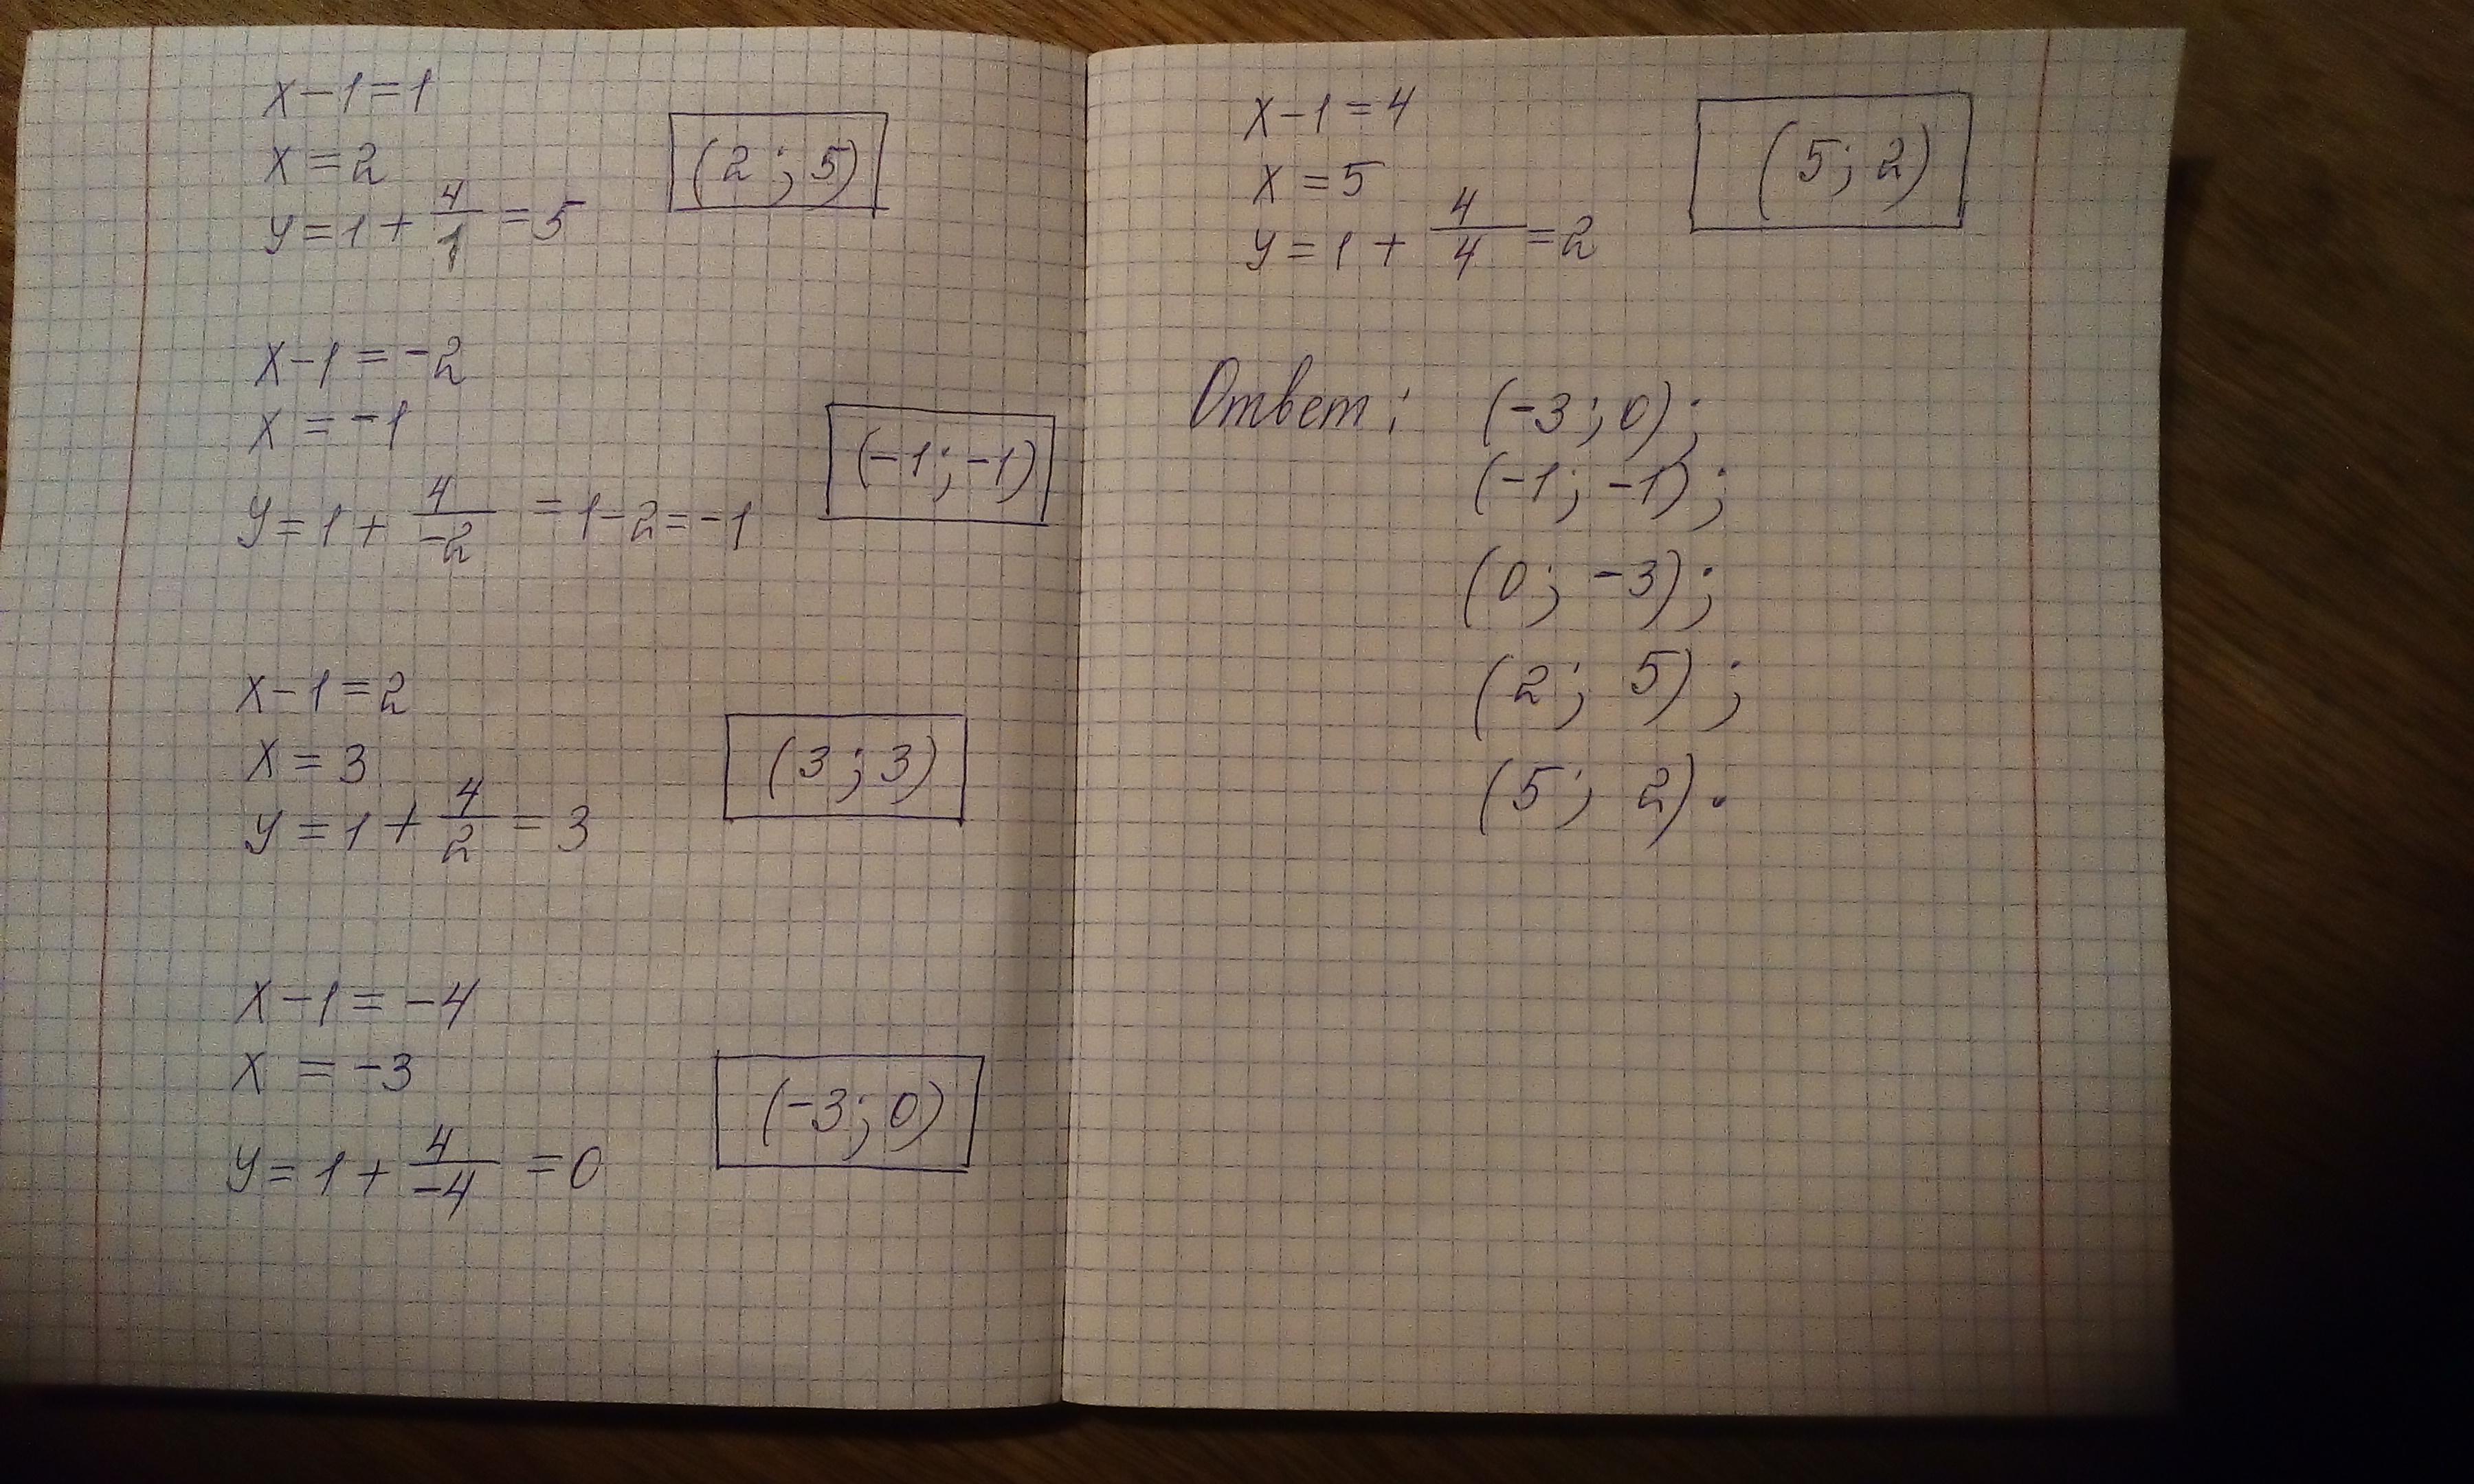 x-1=1
x=2
y=1+4/1=5
(2;5)
x-1=-2
x=-1
y=1+4/-2=1-2=-1
(-1;-1)
x-1=2
x=3
y=1+4/2=3
(3;3)
x-1=-4
x=-3
y=1+4/-4=0
(-3;0)
x-1=4
x=5
y=1+4/4=2
(5;2)
Ответ: (-3;0);
(-1;-1);
(0;-3);
(2;5);
(5;2).